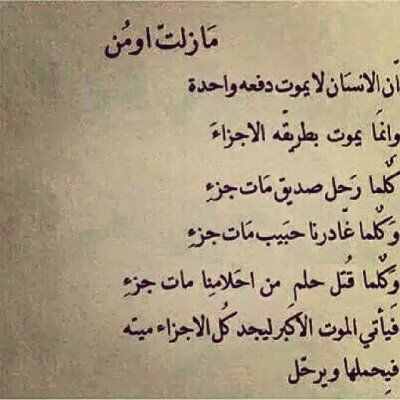 مَازلتّ اومُن
اّن الانسَان لا يموت دفعه واحدة
وانمَا يموت بطريقّه الاجزاءَ
كٌلما رَحل صديقّ مَات جزءِ
وَكٌلما غّادرنا حبَيب مَات جزءِ
وَكٌلما قُتل حلم من احَلامنِا مات جزءِ
فَيأتي الموت الأكبر ليجد كُل الاجزاء ميتّه
فيِحملها ويرحّل